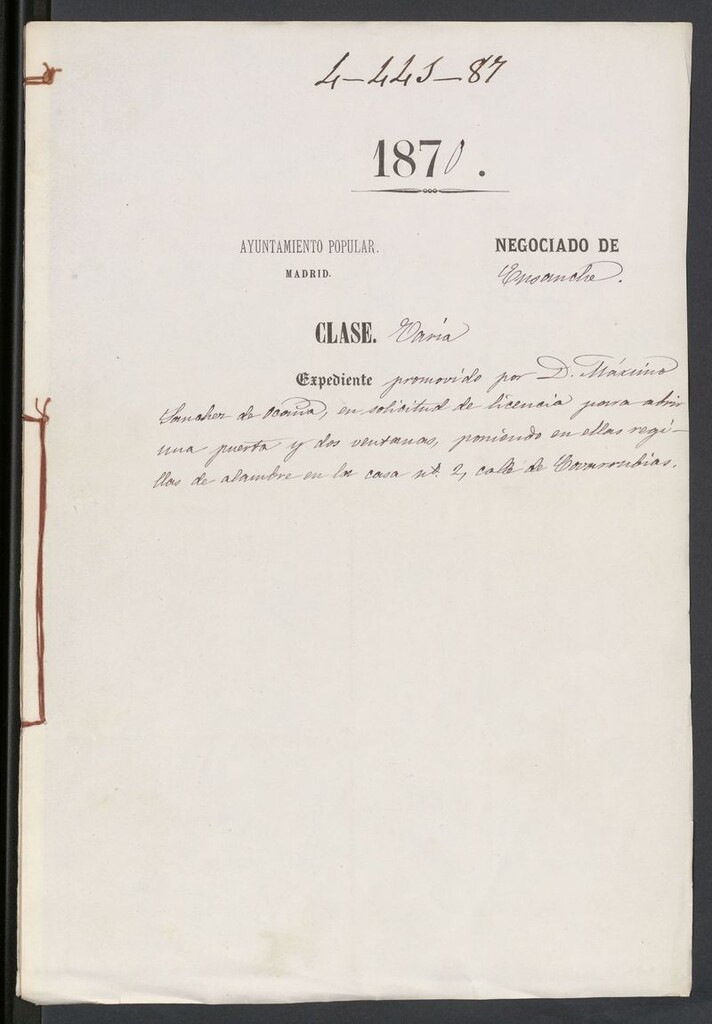 4-445-87
1870.
AYUNTAMIENTO POPULAR.
MADRID.
NEGOCIADO DE
Ensanche.
CLASE. Varia
Expediente promovido por D. Máximo
Sanchez de Ocaña, en solicitud de licencia para abrir
una puerta y dos ventanas, poniendo en ellas regi-
llas de alambre en la casa nº. 2, calle de Covarrubias.